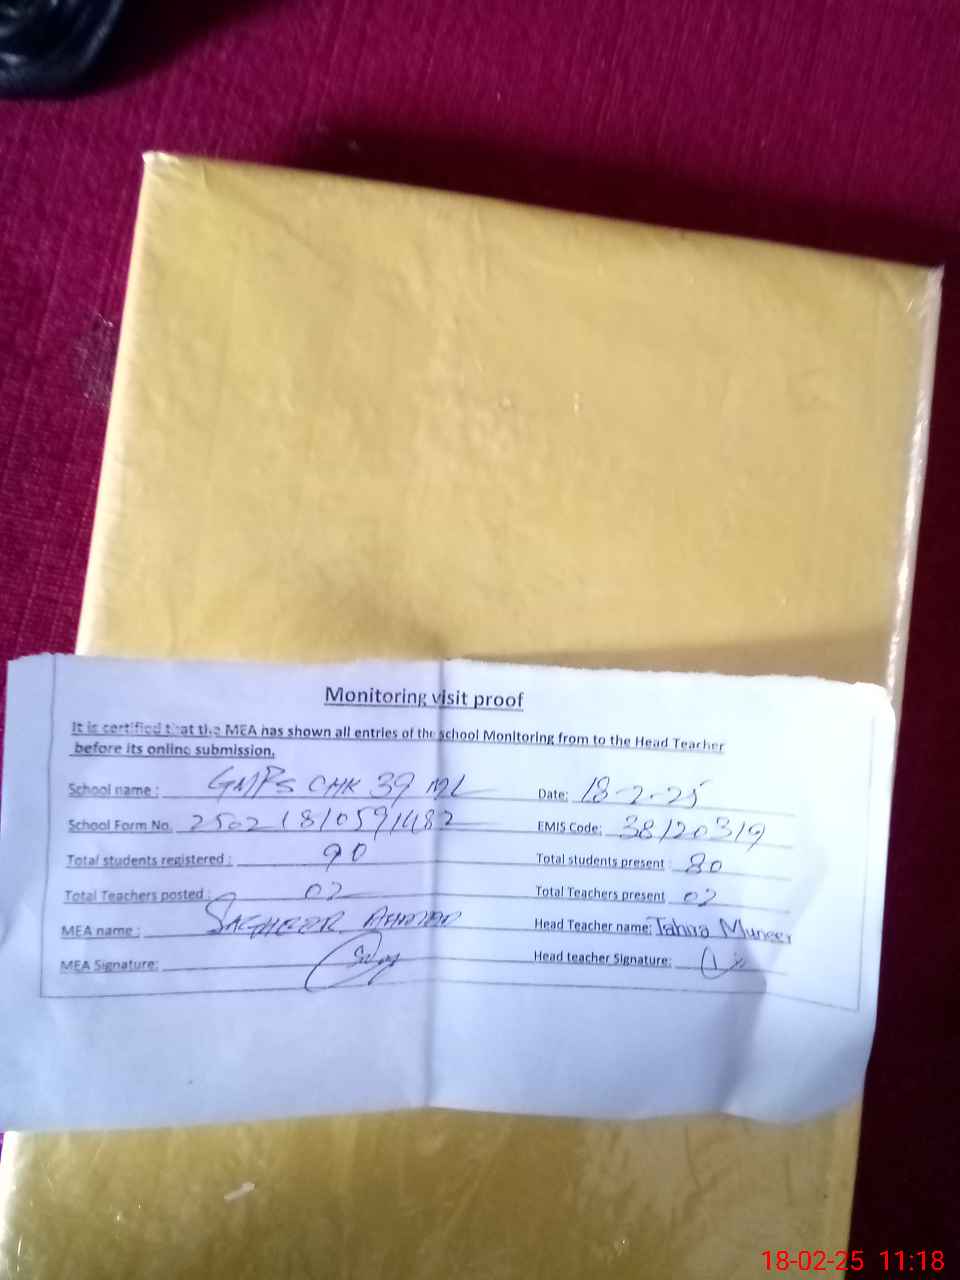 Monitoring visit proof
It is certified that the MEA has shown all entries of the school Monitoring from to the Head Teacher
before its online submission.
School name : GMPS CHK 39 ML Date: 18-2-25
School Form No. 25021810591482 EMIS Code: 38120319
Total students registered : 90 Total students present 80
Total Teachers posted : 02 Total Teachers present 02
MEA name : SAGHEER AHMAD Head Teacher name: Tahira Muneer
MEA Signature: Head teacher Signature:
18-02-25 11:18